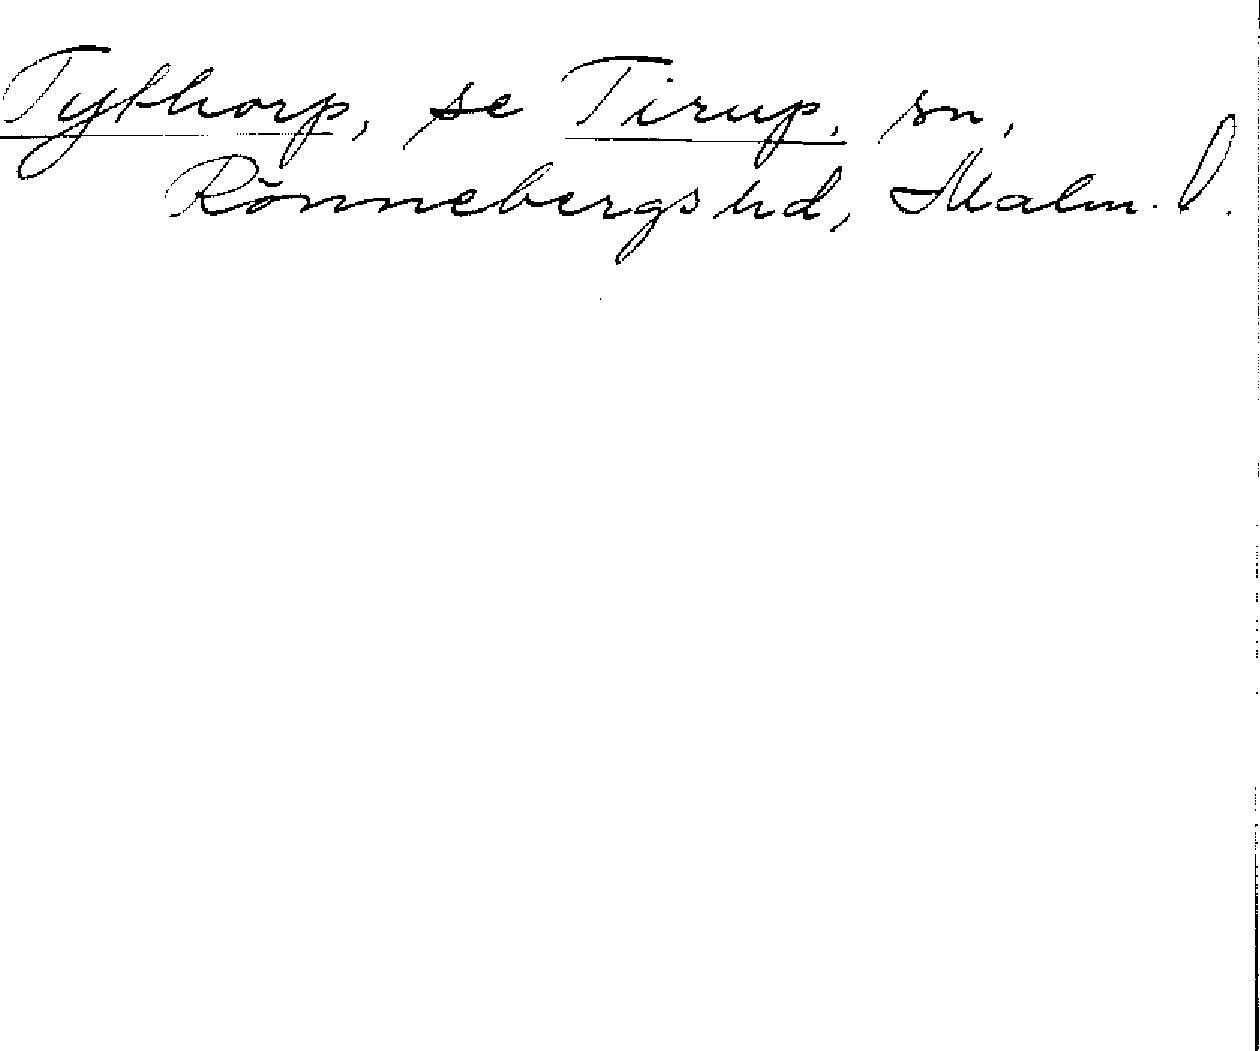 Tythorp, se Tirup, sn,
Rönnebergs hd, Malm. l.